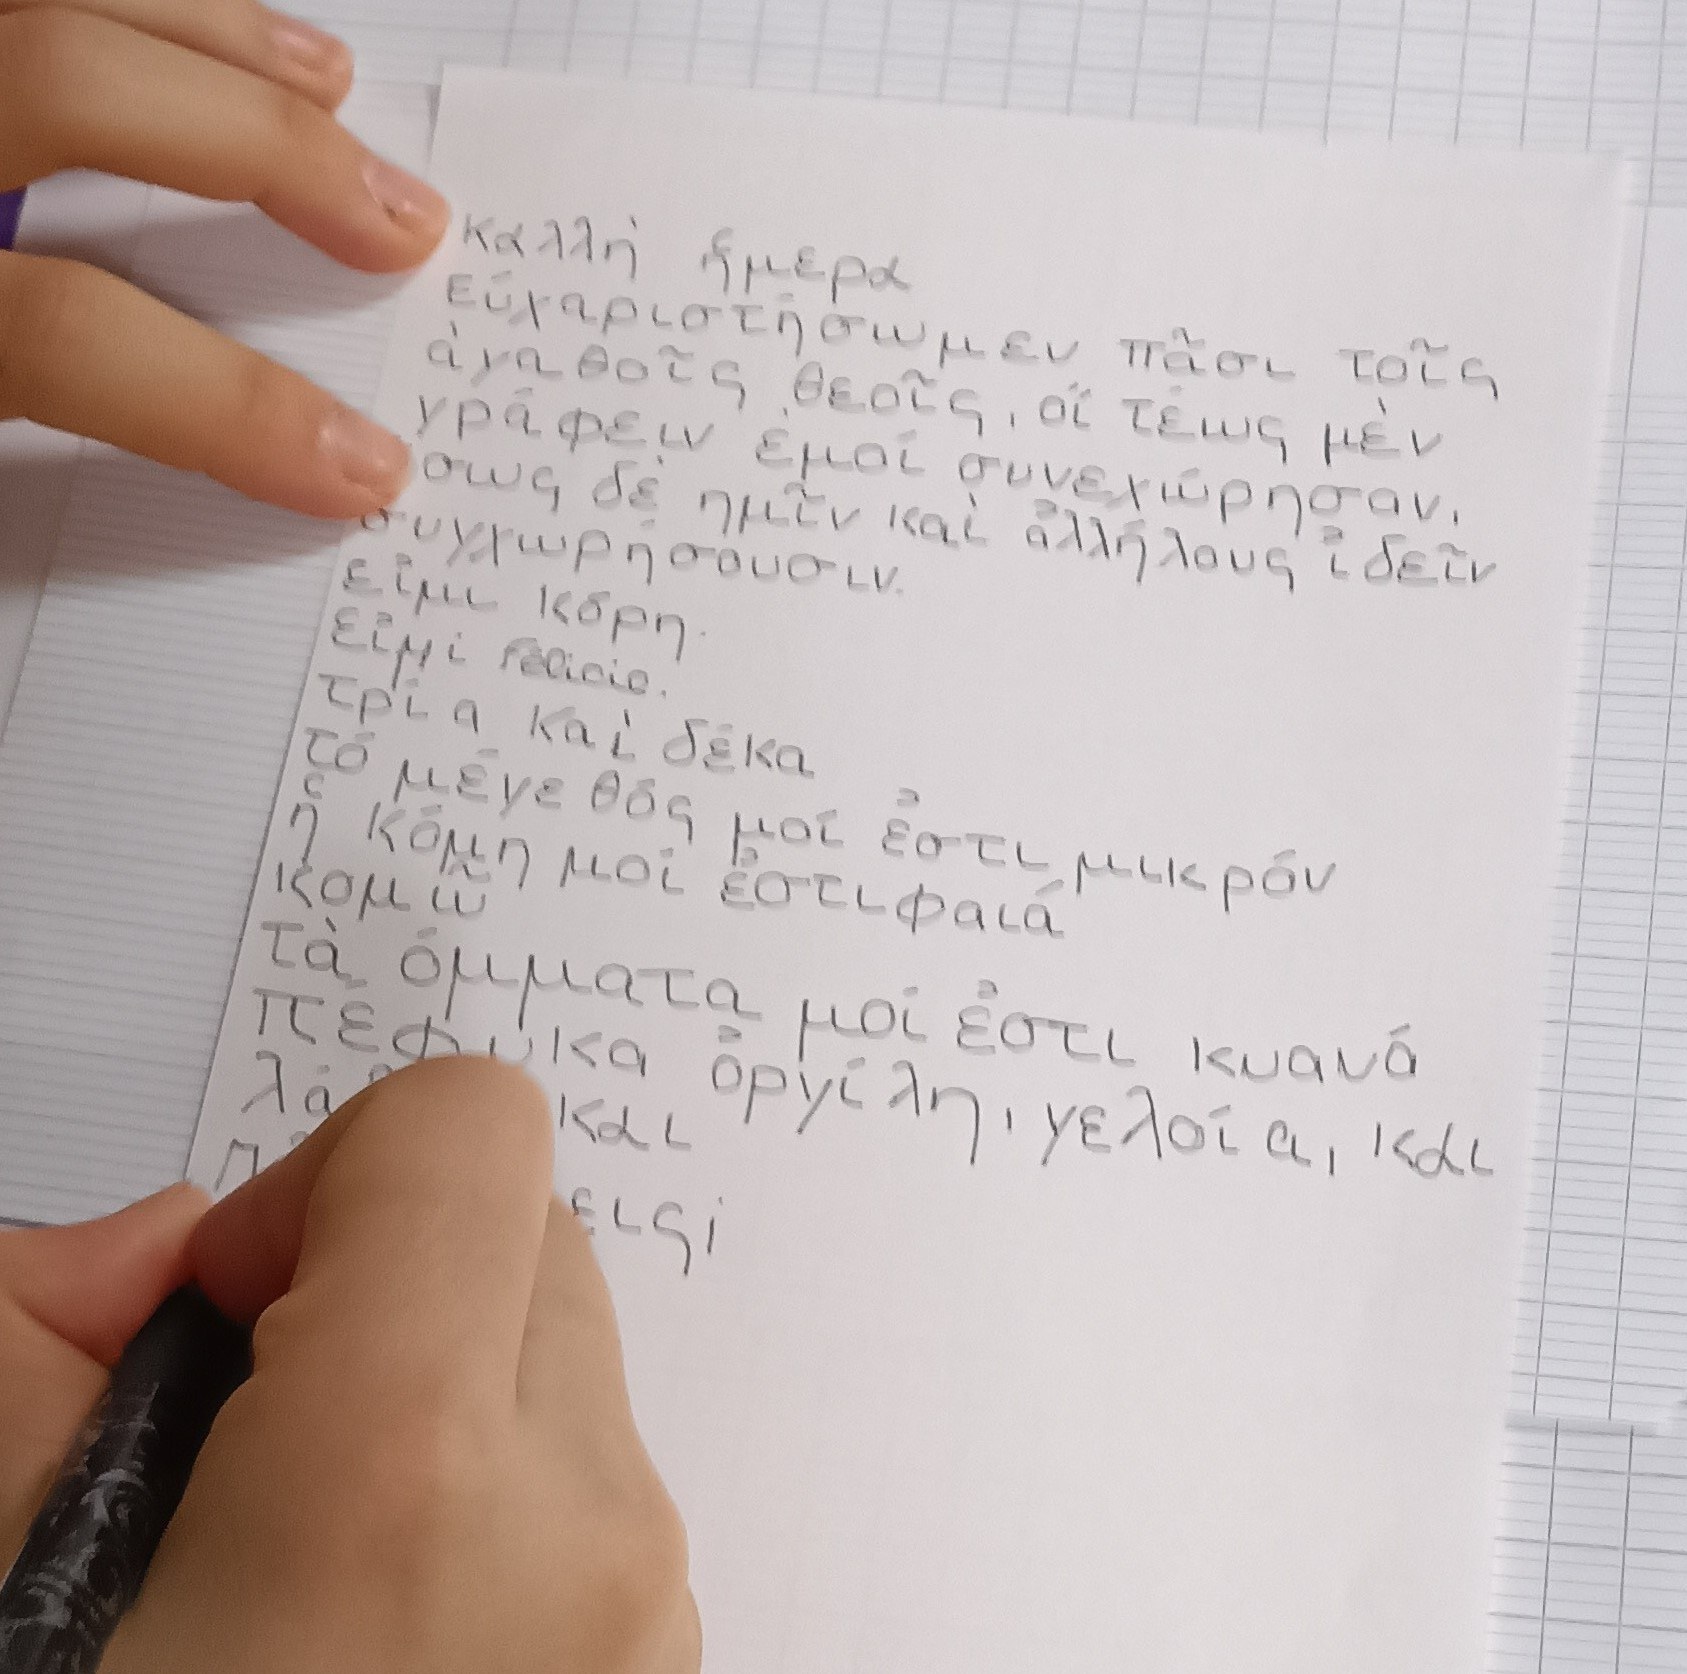 καλλὴ ἡμερα
Εὐχαριστήσωμεν πᾶσι τοῖς
ἀγαθοῖς θεοῖς, οἵ τέως μὲν
γράφειν ἐμοί συνεχώρησαν,
σως δὲ ημῖν καὶ ἀλλήλους ἰδεῖν
συγχωρήσουσιν.
εἰμι κόρη.
εἰμί Felicie.
τρία καὶ δέκα
τό μέγεθός μοί ἐστι μικρόν
ἡ κόμη μοί ἐστι φαιά
κομῶ
τὰ όμματα μοί ἐστι κυανά
πέφυκα ὀργίλη, γελοία, και
και